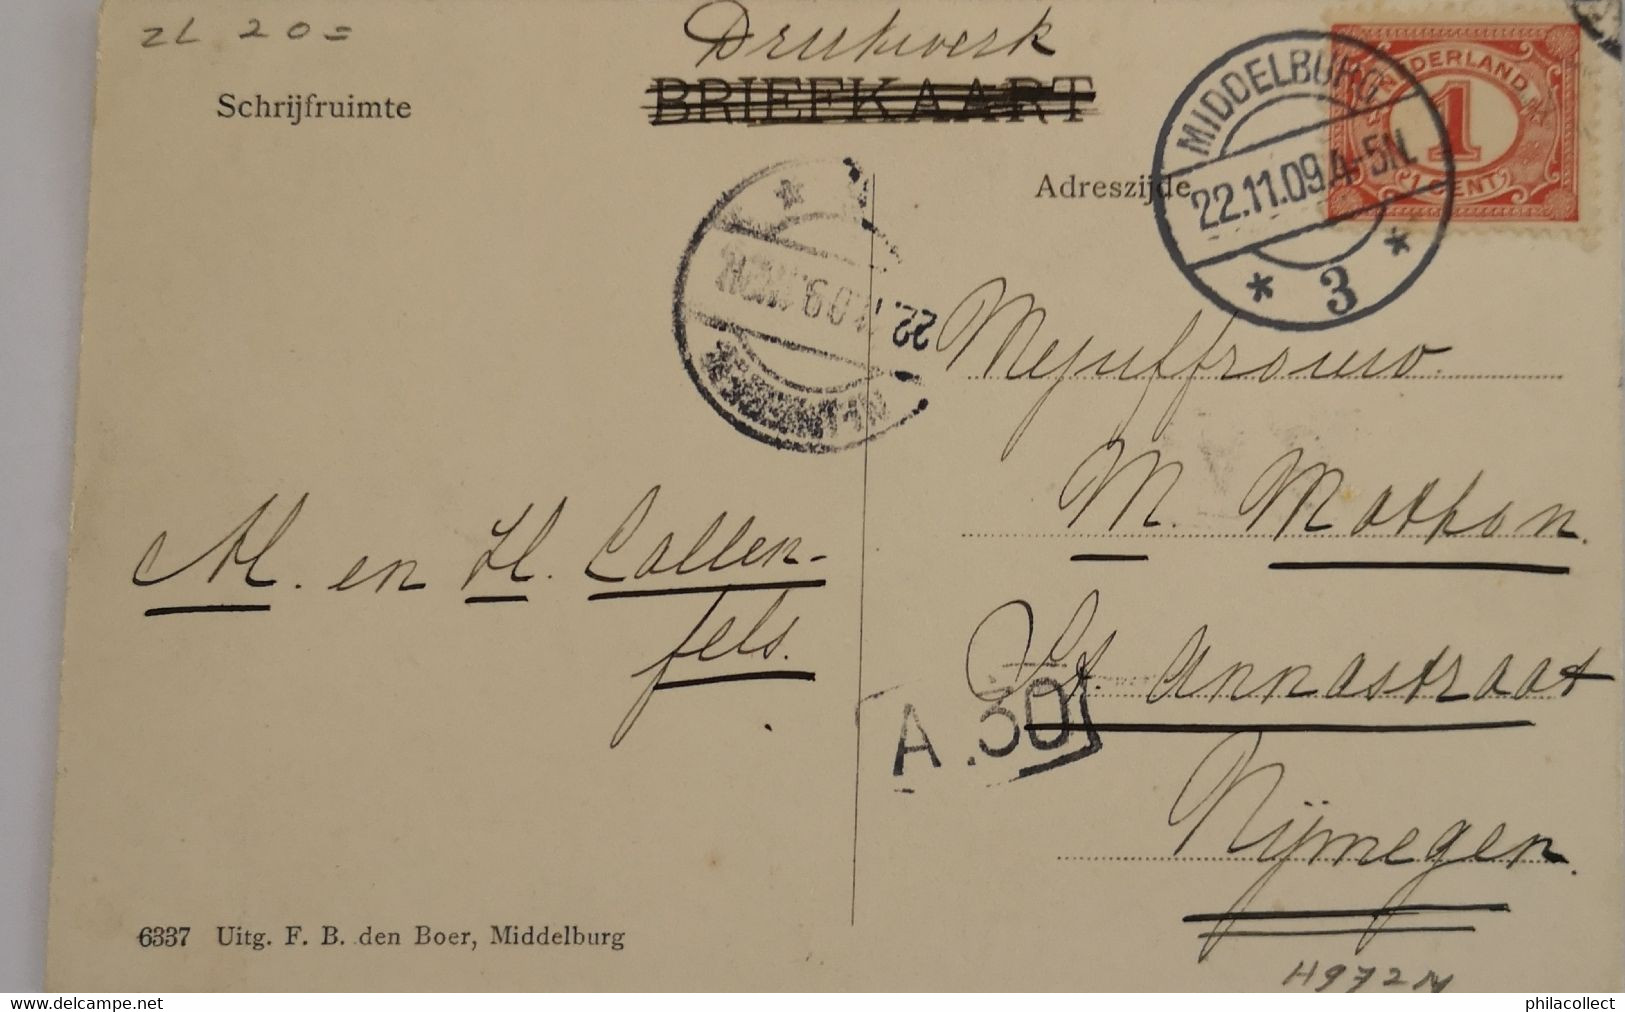 zL 20=
Drukwerk
BRIEFKAART
Schrijfruimte
Adreszijde
NEDERLAND
1
1 CENT
MIDDELBURG
22.11.09.4-5N.
* 3 *
22.
Mejuffrouw.
M. Mathon.
St. Annastraat
Nijmegen.
M. en H. Callen-
fels.
A.30
6337 Uitg. F. B. den Boer, Middelburg
H972M
delcampe.net
philacollect